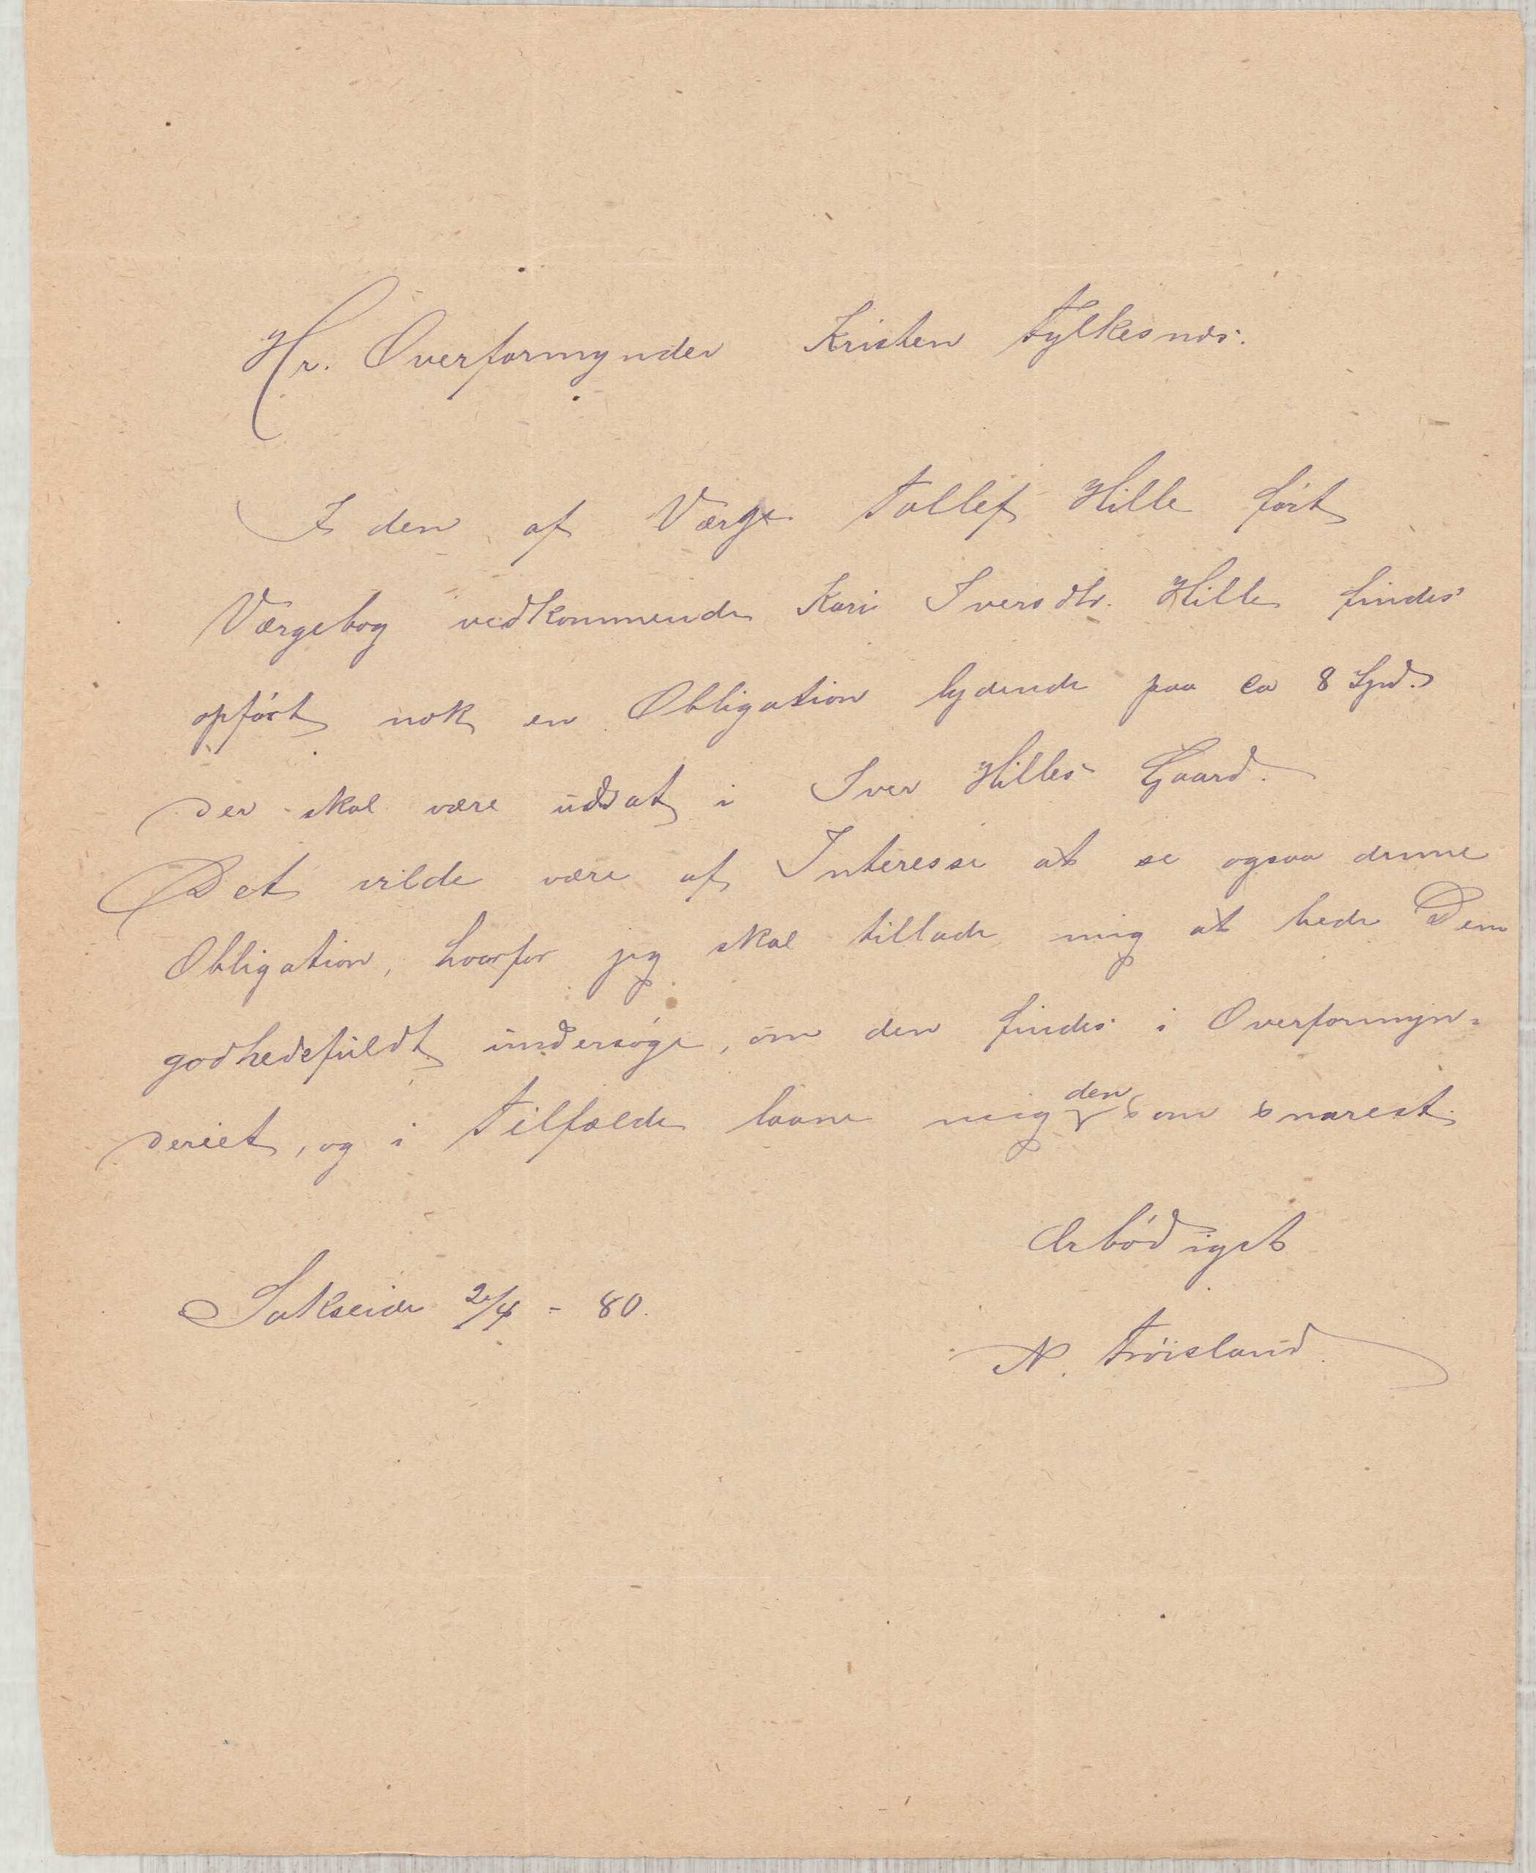 Hr. Overformynder Kristen Fylkesnæs.
I den af Værge Tollef Hille ført
Værgebog vedkommende Kari Iversdtr. Hille findes
opført nok en Obligation lydende paa ca 8 Spd.
der skal være udsat i Iver Hilles Gaard.
Det vilde være af Interesse at se ogsaa denne
Obligation, hvorfor jeg skal tillade mig at bede Dem
godhedsfuldt undersøge, om den findes i Overformyn-
deriet, og i Tilfælde laane mig den som snarest.
Ærbødigst
Sakseide 2/4 - 80.
N. Frøisland